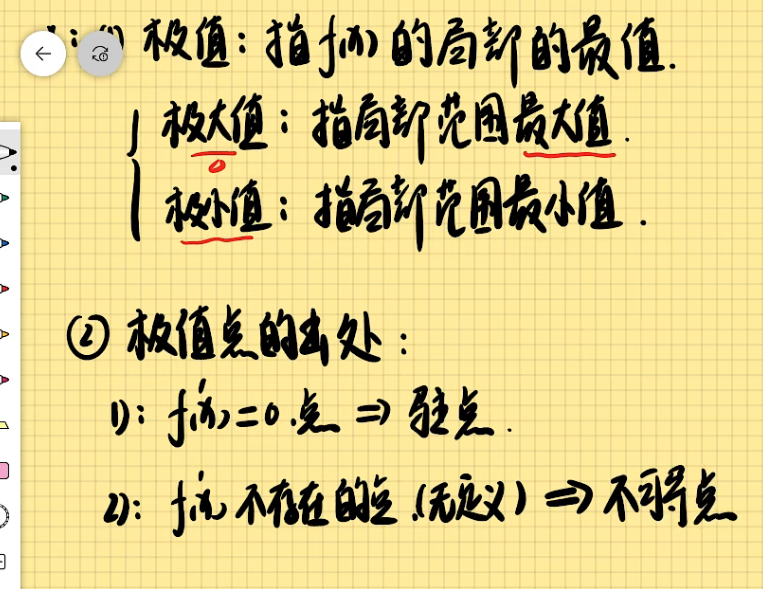 ① 极值：指f(x)的局部的最值.
极大值：指局部范围最大值.
极小值：指局部范围最小值.
② 极值点的出处：
1)：f'(x)=0.点 ⇒ 驻点.
2)：f'(x)不存在的点.(无定义) ⇒ 不可导点